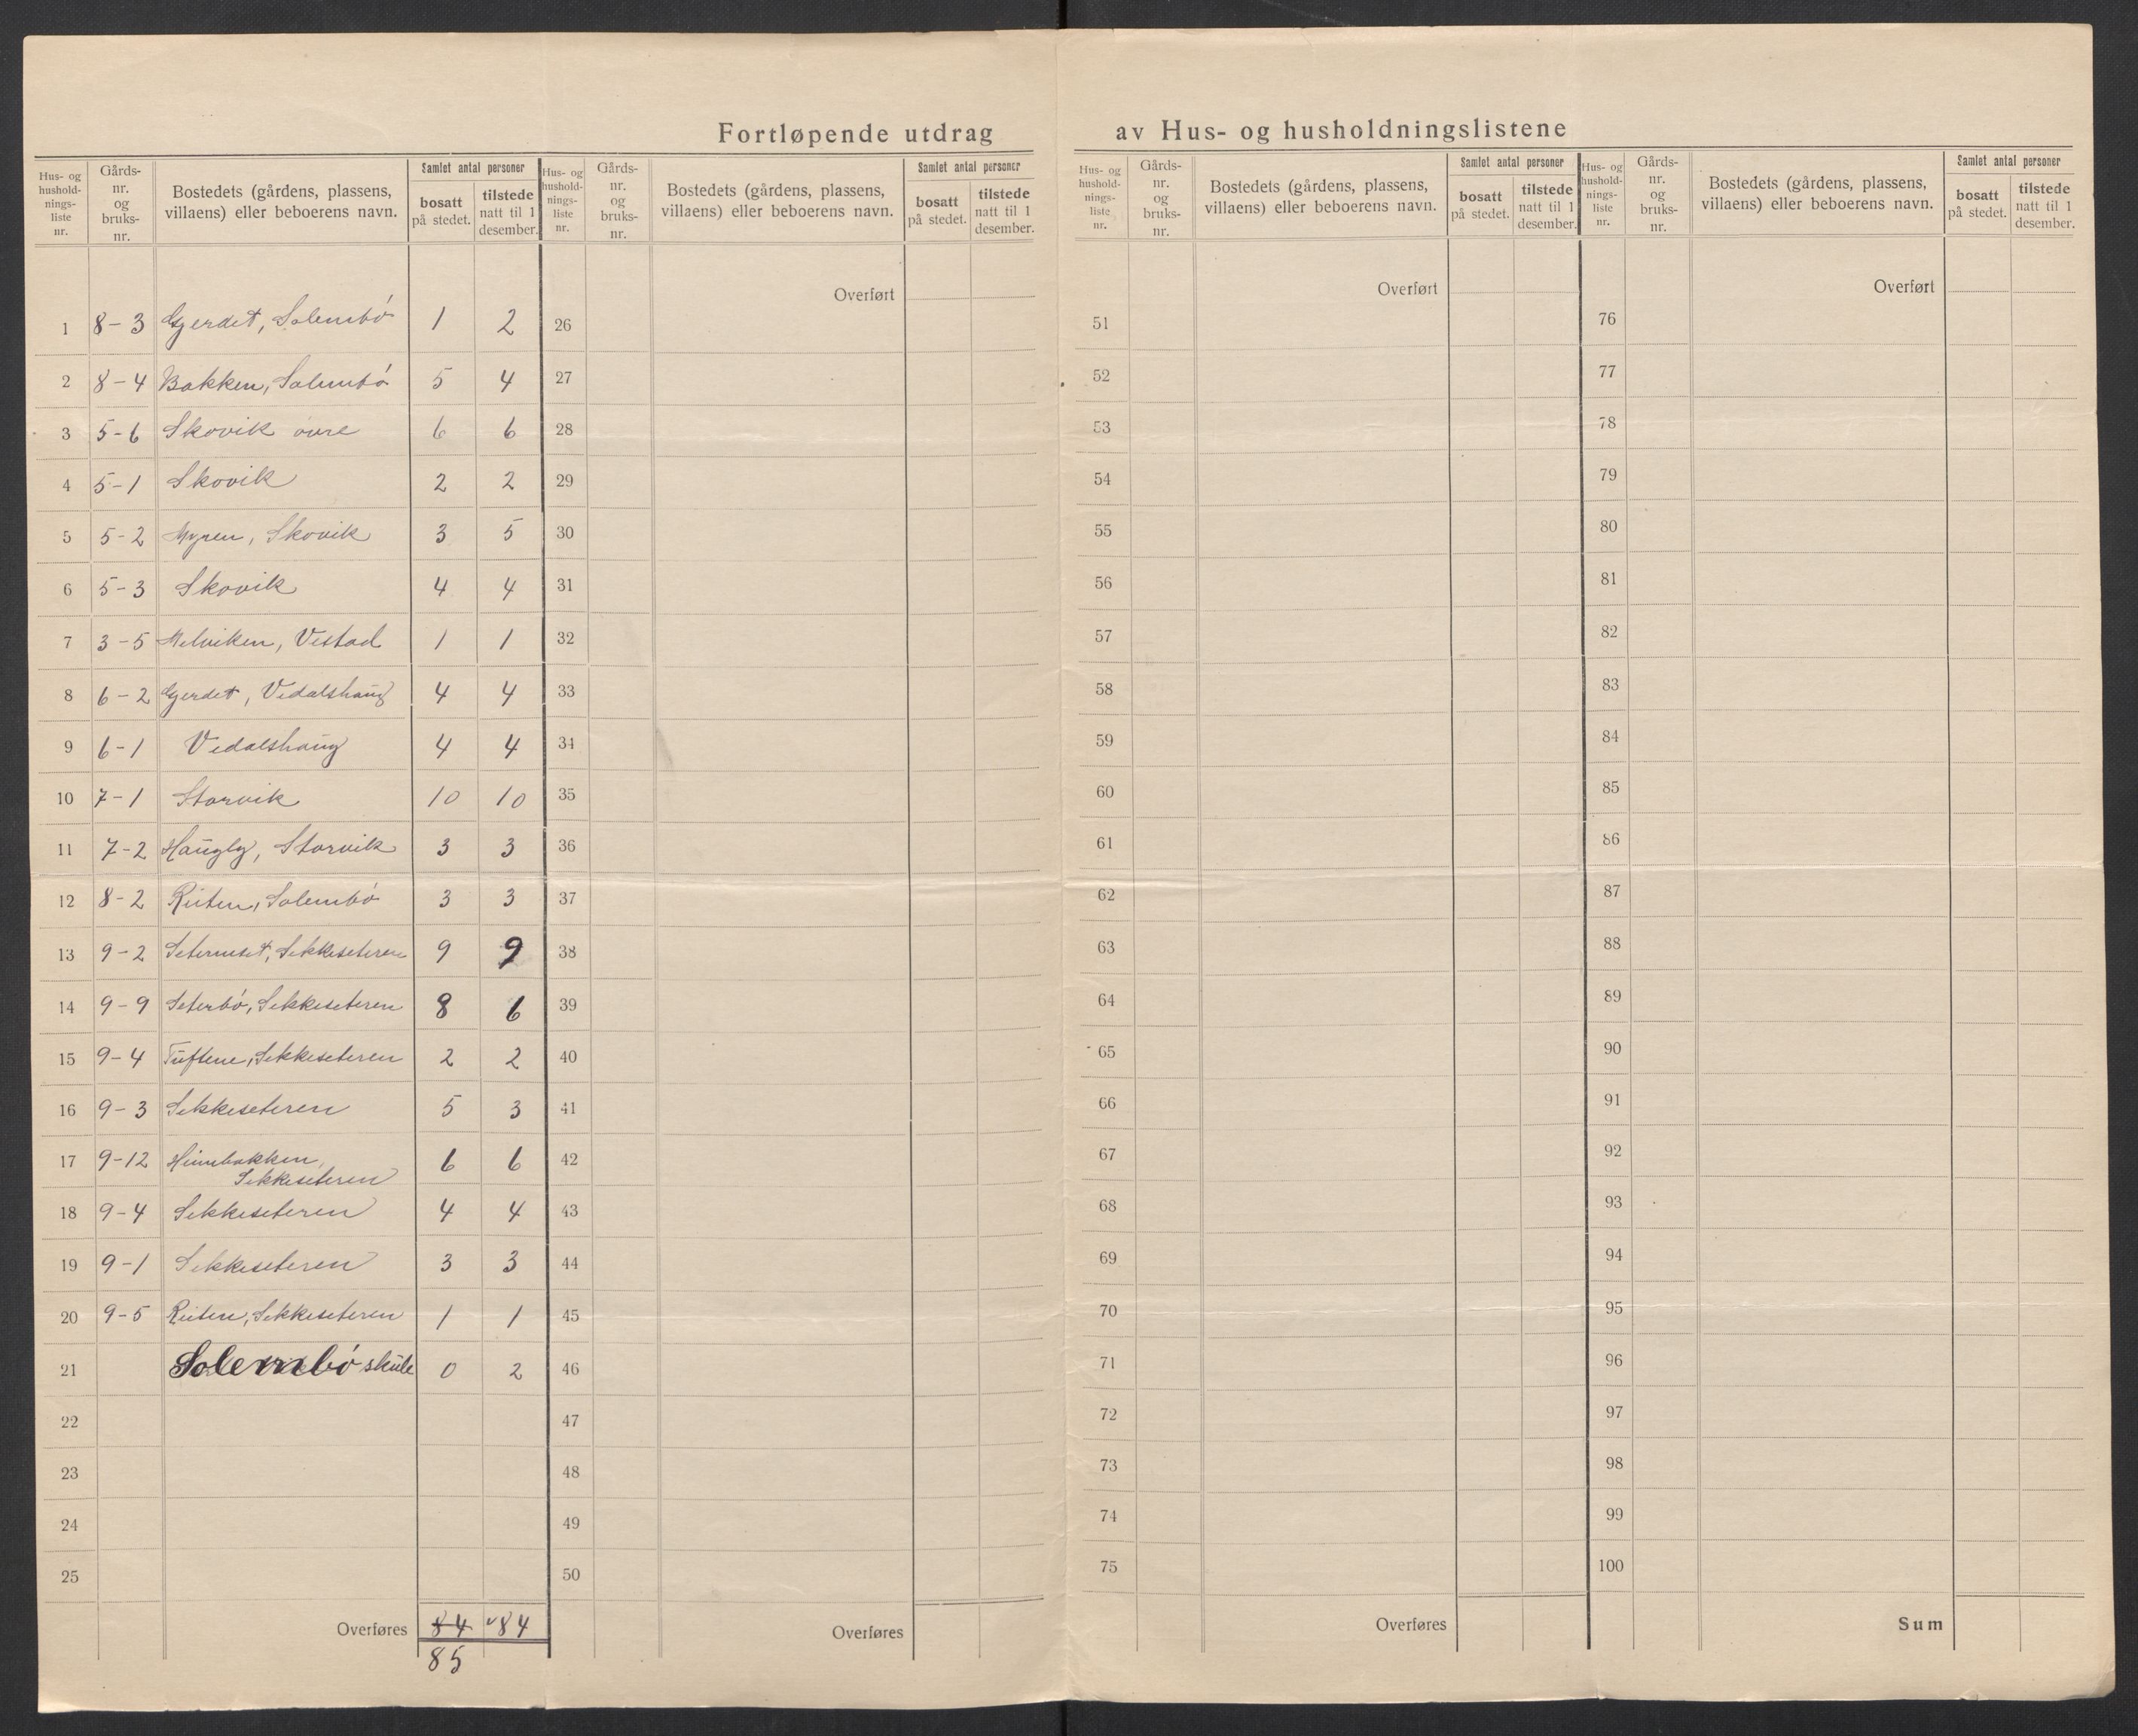 Fortløpende utdrag av Hus- og husholdningslistene
Hus- og hushold-nings-liste nr. Gårds-nr. og bruks-nr. Bostedets (gårdens, plassens, villaens) eller beboerens navn. Samlet antal personer bosatt på stedet. tilstede natt til 1 desember.
1 8-3 Gjerdet, Solembö 1 2
2 8-4 Bakken, Solembö 5 4
3 5-6 Skovik övre 6 6
4 5-1 Skovik 2 2
5 5-2 Myren, Skovik 3 5
6 5-3 Skovik 4 4
7 3-5 Melviken, Vestad 1 1
8 6-2 Gjerdet, Vedalshaug 4 4
9 6-1 Vedalshaug 4 4
10 7-1 Storvik 10 10
11 7-2 Haugly, Storvik 3 3
12 8-2 Reiten, Solembö 3 3
13 9-2 Seterneset, Sekkeseteren 9 9
14 9-9 Seterbö, Sekkeseteren 8 6
15 9-4 Tuftene, Sekkeseteren 2 2
16 9-3 Sekkeseteren 5 3
17 9-12
Sekkeseteren 6 6
18 9-4 Sekkeseteren 4 4
19 9-1 Sekkeseteren 3 3
20 9-5 Reiten, Sekkeseteren 1 1
21 Solembö skule 0 2
22
23
24
25
Overføres 84 84
85
Hus- og hushold-nings-liste nr. Gårds-nr. og bruks-nr. Bostedets (gårdens, plassens, villaens) eller beboerens navn. Samlet antal personer bosatt på stedet. tilstede natt til 1 desember.
Overført
26
27
28
29
30
31
32
33
34
35
36
37
38
39
40
41
42
43
44
45
46
47
48
49
50
Overføres
Hus- og hushold-nings-liste nr. Gårds-nr. og bruks-nr. Bostedets (gårdens, plassens, villaens) eller beboerens navn. Samlet antal personer bosatt på stedet. tilstede natt til 1 desember.
Overført
51
52
53
54
55
56
57
58
59
60
61
62
63
64
65
66
67
68
69
70
71
72
73
74
75
Overføres
Hus- og hushold-nings-liste nr. Gårds-nr. og bruks-nr. Bostedets (gårdens, plassens, villaens) eller beboerens navn. Samlet antal personer bosatt på stedet. tilstede natt til 1 desember.
Overført
76
77
78
79
80
81
82
83
84
85
86
87
88
89
90
91
92
93
94
95
96
97
98
99
100
Sum